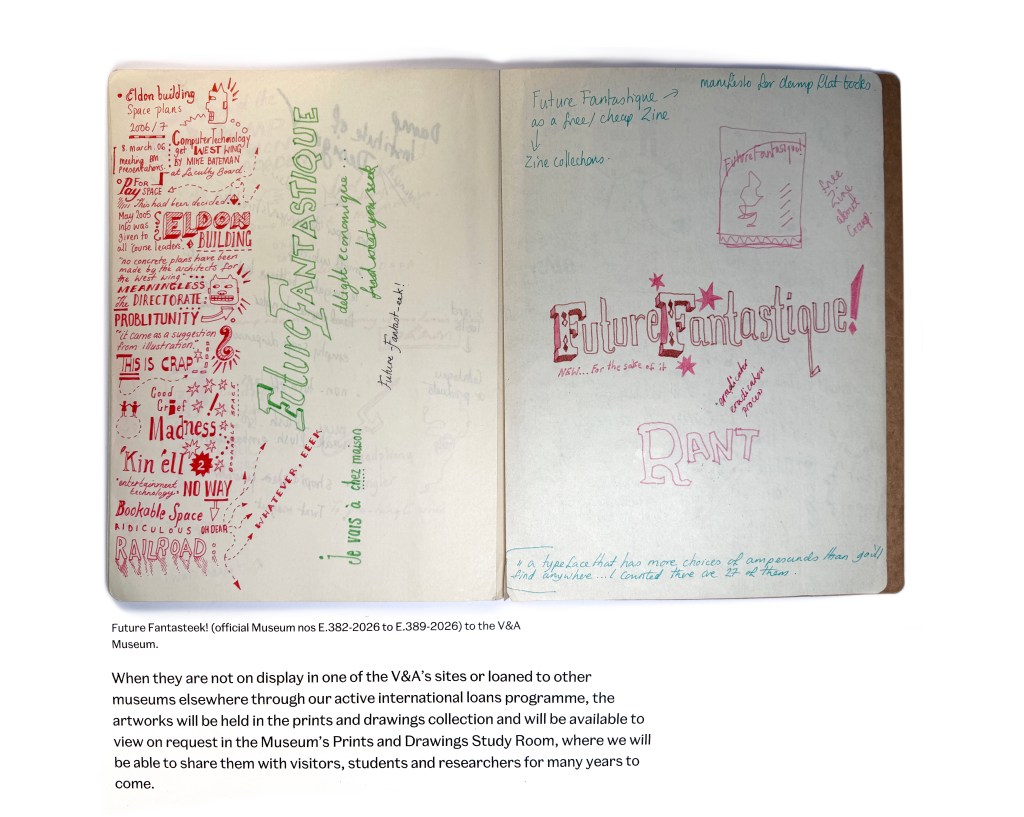 • Eldon building
Space plans
2006/7
8. march. 06
meeting BM
PRESENTATIONS.
Computer Technology
get 'WEST WING'
BY MIKE BATEMAN
at Faculty Board
PAY FOR
SPACE
This had been decided.
May 2005
info was
given to
all Course leaders.
ELDON
BUILDING
"no concrete plans have been
made by the architects for
the West wing"
MEANINGLESS
The DIRECTORATE:
PROBLITUNITY
"it came as a suggestion
from illustration."
THIS IS CRAP
Good
Grief
Madness
BOOKABLE SPACE
'Kin 'ell 2
"entertainment
technology" NO WAY
Bookable Space
RIDICULOUS OH DEAR
RAILROAD
WHATEVER, EEEK
Future FANTASTIQUE
delight economique
head what you seek
Future Fantast-eek!
Je vais à chez maison
manifesto for damp flat books
Future Fantastique →
as a free/cheap Zine
↓
Zine collections.
Future Fantastique!
free
Zine
about
Group.
Future Fantastique!
NEW... For the sake of it
eradicator
eradication
process
RANT
a typeface that has more choices of ampersands than you'll
find anywhere... I counted there are 27 of them.
Future Fantasteek! (official Museum nos E.382-2026 to E.389-2026) to the V&A
Museum.
When they are not on display in one of the V&A's sites or loaned to other
museums elsewhere through our active international loans programme, the
artworks will be held in the prints and drawings collection and will be available to
view on request in the Museum's Prints and Drawings Study Room, where we will
be able to share them with visitors, students and researchers for many years to
come.